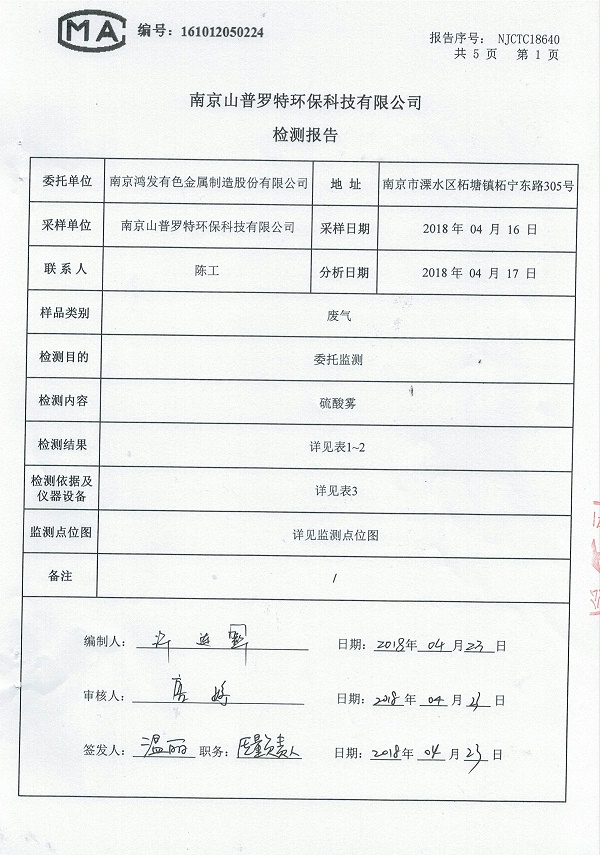 MA 编号：161012050224
报告序号： NJCTC18640
共 5 页 第 1 页
南京山普罗特环保科技有限公司
检测报告
委托单位 南京鸿发有色金属制造股份有限公司 地 址 南京市溧水区柘塘镇柘宁东路305号
采样单位 南京山普罗特环保科技有限公司 采样日期 2018 年 04 月 16 日
联 系 人 陈工 分析日期 2018 年 04 月 17 日
样品类别 废气
检测目的 委托监测
检测内容 硫酸雾
检测结果 详见表1~2
检测依据及
仪器设备 详见表3
监测点位图 详见监测点位图
备注 /
编制人： 日期：2018年 04 月 23 日
审核人： 日期：2018 年 04 月 23 日
签发人：温丽 职务：质量负责人 日期：2018 年 04 月 23 日